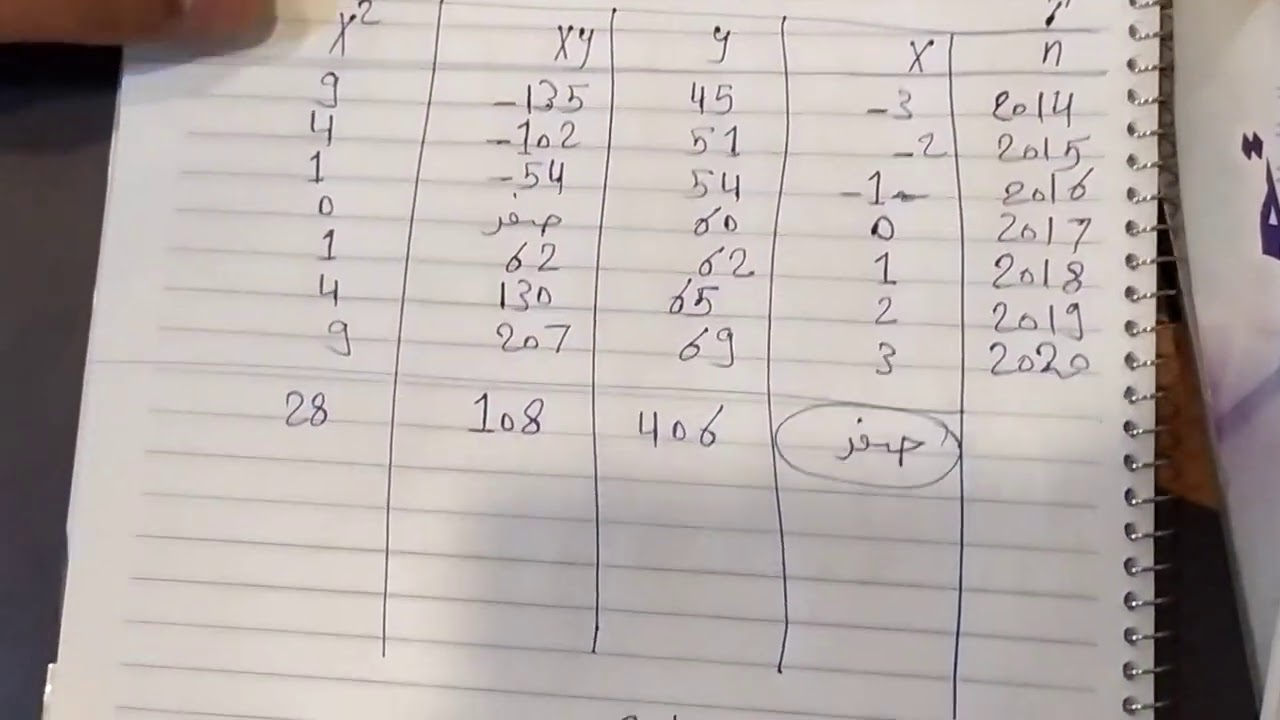 X² XY y X n
9 -135 45 -3 2014
4 -102 51 -2 2015
1 -54 54 -1 2016
0 صفر 60 0 2017
1 62 62 1 2018
4 130 65 2 2019
9 207 69 3 2020
28 108 406 صفر